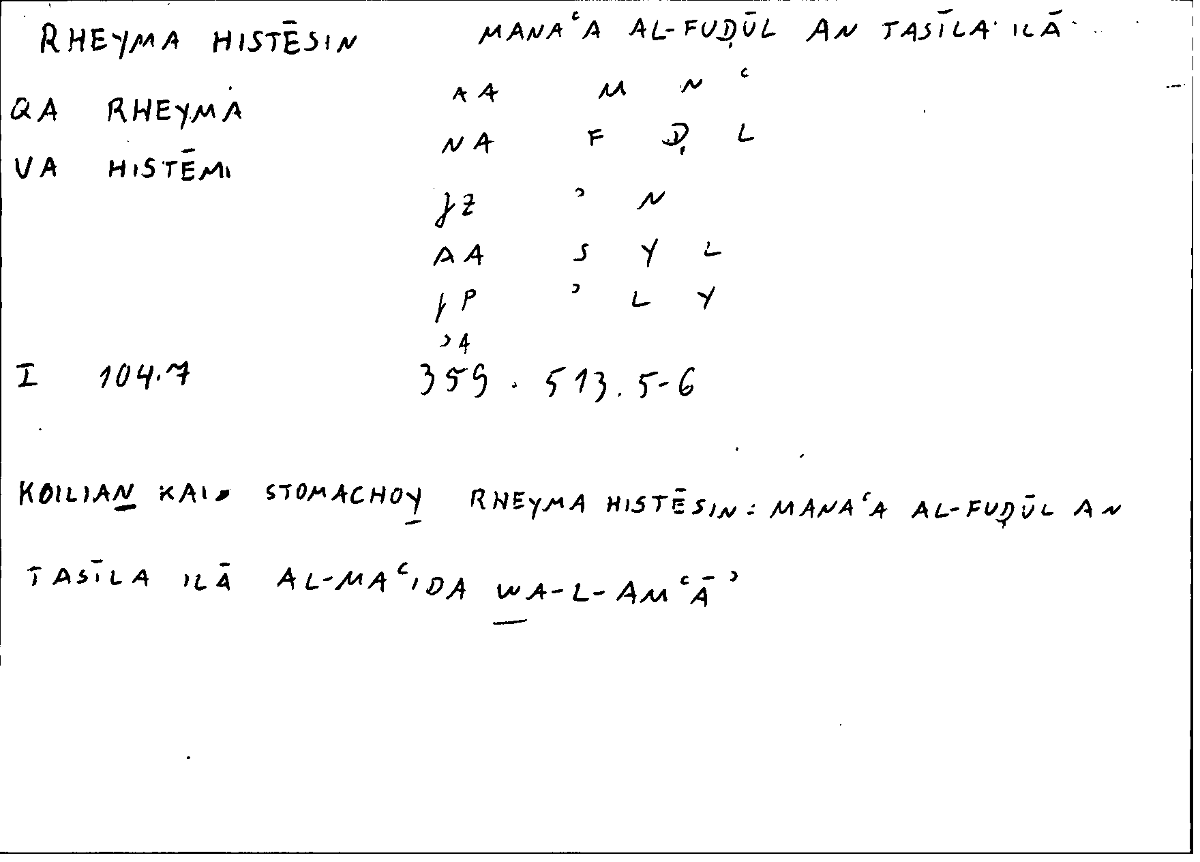 RHEYMA HISTĒSIN MANAʿA AL-FUḌŪL AN TASĪLA ILĀ
QA RHEYMA AA M N ʿ
VA HISTĒMI NA F Ḍ L
JZ ʾ N
AA S Y L
JP ʾ L Y
ʾA
I 104.7 359.513.5-6
KOILIAN KAI STOMACHOY RHEYMA HISTĒSIN: MANAʿA AL-FUḌŪL AN
TASĪLA ILĀ AL-MAʿIDA WA-L-AMʿĀʾ